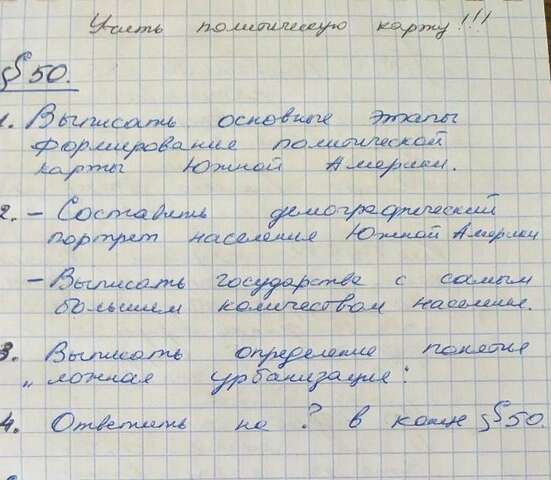 Учить политическую карту!!!
§ 50.
1. Выписать основные этапы
формирование политической
карты Южной Америки.
2. – Составить демографический
портрет населения Южной Америки
– Выписать государства с самым
большим количеством населения.
3. Выписать определение понятие
„ ложная урбанизация:
4. Ответить на ? в конце § 50.